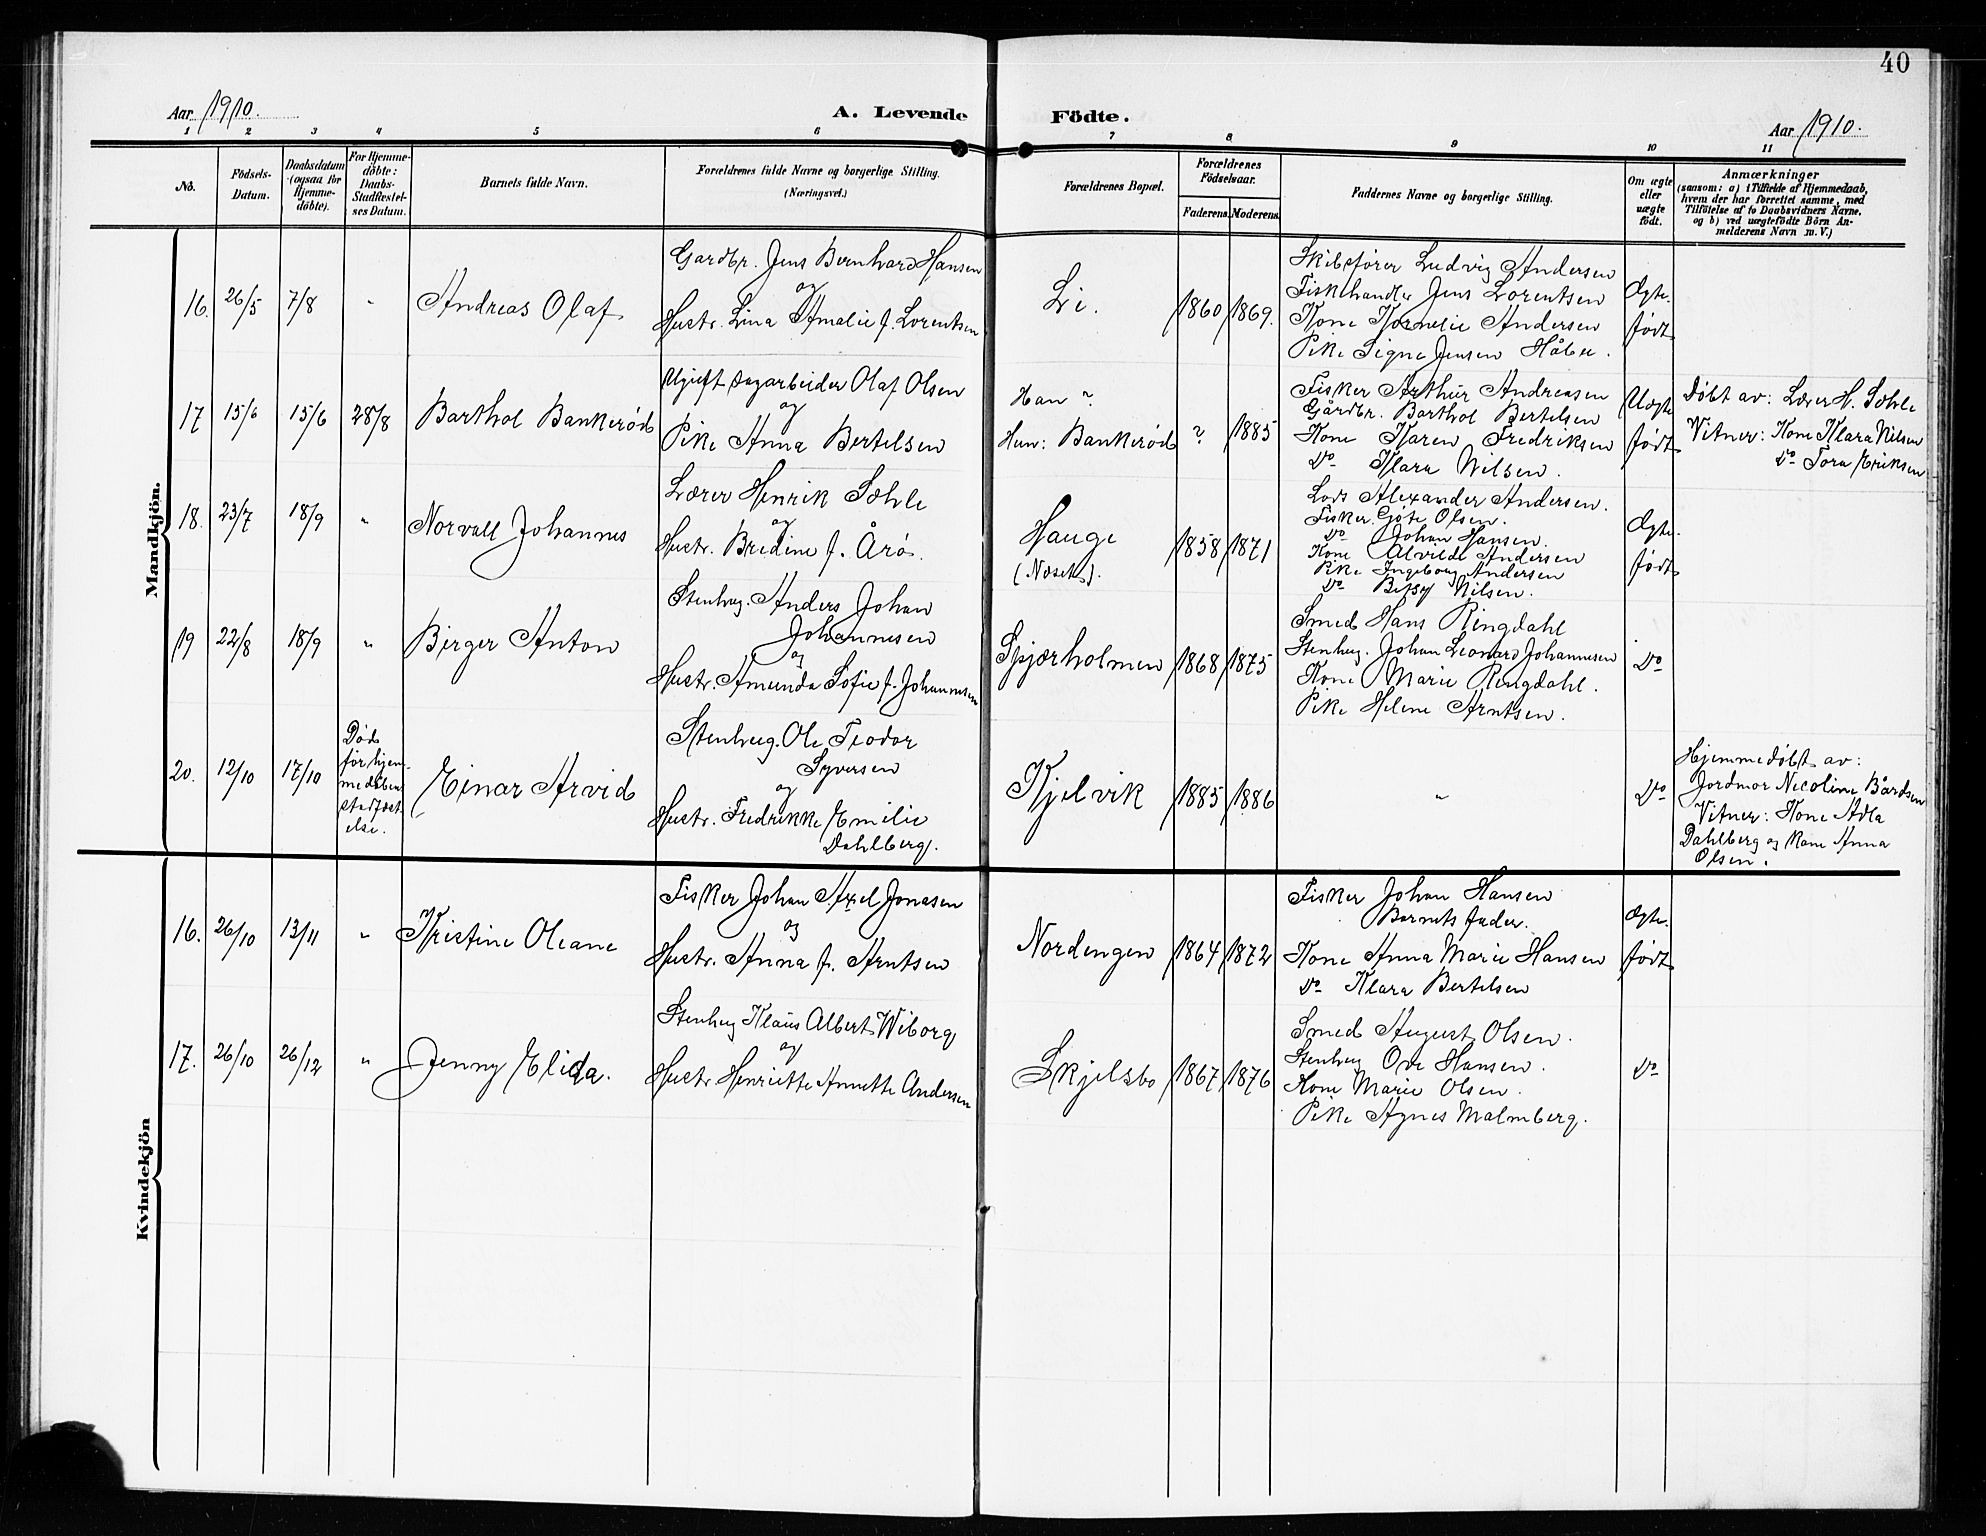 40
Aar 1910.
A. Levende Födte.
Aar 1910.
1 2 3 4 5 6 7 8 9 10 11
No.
Födsels-
Datum.
Daabsdatum
(ogsaa for
Hjemme-
döbte).
For Hjemme-
döbte:
Daabs-
Stadfæstel-
ses Datum.
Barnets fulde Navn.
Forældrenes fulde Navne og borgerlige Stilling.
(Næringsvei.)
Forældrenes Bopæl.
Forældrenes
Födselsaar.
Faderens. Moderens.
Faddernes Navne og borgerlige Stilling.
Om ægte
eller
uægte
födt.
Anmærkninger
(saasom: a) i Tilfælde af Hjemmedaab,
hvem der har forrettet samme, med
Tilföielse af to Daabsvidners Navne,
og b) ved uægtefödte Börn An-
melderens Navn m. V.)
Mandkjön.
16. 26/5 7/8 "
Andreas Olaf
Gardbr. Jens Bernhard Hansen
og
Hustr. Lina Amalie f. Lorentsen
Li.
1860 1869.
Skibsfører Ludvig Andersen
Fiskehandler Jens Lorentsen
Kone Kornelie Andersen
Pike Signe Jensen Håbu.
Ægte.
født
17 15/6 15/6 28/8
Barthol Bankerød
Ugift dagarbeider Olaf Olsen
og
Pike Anna Bertelsen
Han ?
Hun: Bankerød
? 1885
Fisker Arthur Andreasen
Gårdbr. Barthol Bertelsen
Kone Karen Fredriksen
Do Klara Nilsen.
Uægte
født
Døbt av: Lærer H. Sæhle
Vitner: Kone Klara Nilsen
Do Tora Eriksen
18. 23/7 18/9 "
Norvall Johannes
Lærer Henrik Sæhle
og
Hustr. Bredine f. Årø.
Hauge
(Næset).
1858 1871
Lods Alexander Andersen.
Fisker Göte Olsen.
Do Johan Hansen.
Kone Alvilde Andersen
Pike Ingeborg Andersen
Do Betsy Nilsen.
Ægte.
født
19 22/8 18/9 "
Birger Anton
Stenhug. Anders Johan
Johannesen
og
Hustr. Amunda Sofie f. Johannesen
Spjærholmen
1868 1875
Smed Hans Ringdahl
Stenhug. Johan Leonard Johannesen
Kone Marie Ringdahl.
Pike Helene Arntsen.
Do
20. 12/10 17/10
Død
før hjem-
medåben
stadfæst-
else.
Einar Arvid
Stenhug. Ole Teodor
Syversen
og
Hustr. Fredrikke Emilie
Dahlberg.
Kjelvik
1885 1886
"
Do
Hjemmedøbt av:
Jordmor Nicoline Bårdsen
Vitner: Kone Adla
Dahlberg og Kone Anna
Olsen.
Kvindekjön
16. 26/10 13/11 "
Kristine Oleane
Fisker Johan Axel Jonasen
og
Hustr. Anna f. Arntsen
Nordengen
1864 1872
Fisker Johan Hansen
Barnets fader.
Kone Anna Marie Hansen
Do Klara Bertelsen
Ægte.
født
17. 26/10 26/12 "
Jenny Elida.
Stenhug Klaus Albert Wiborg
og
Hustr Henriette Annette Andersen
Skjelsbo
1867 1876
Smed August Olsen.
Stenhug Ove Hansen.
Kone Marie Olsen.
Pike Agnes Malmberg.
Do